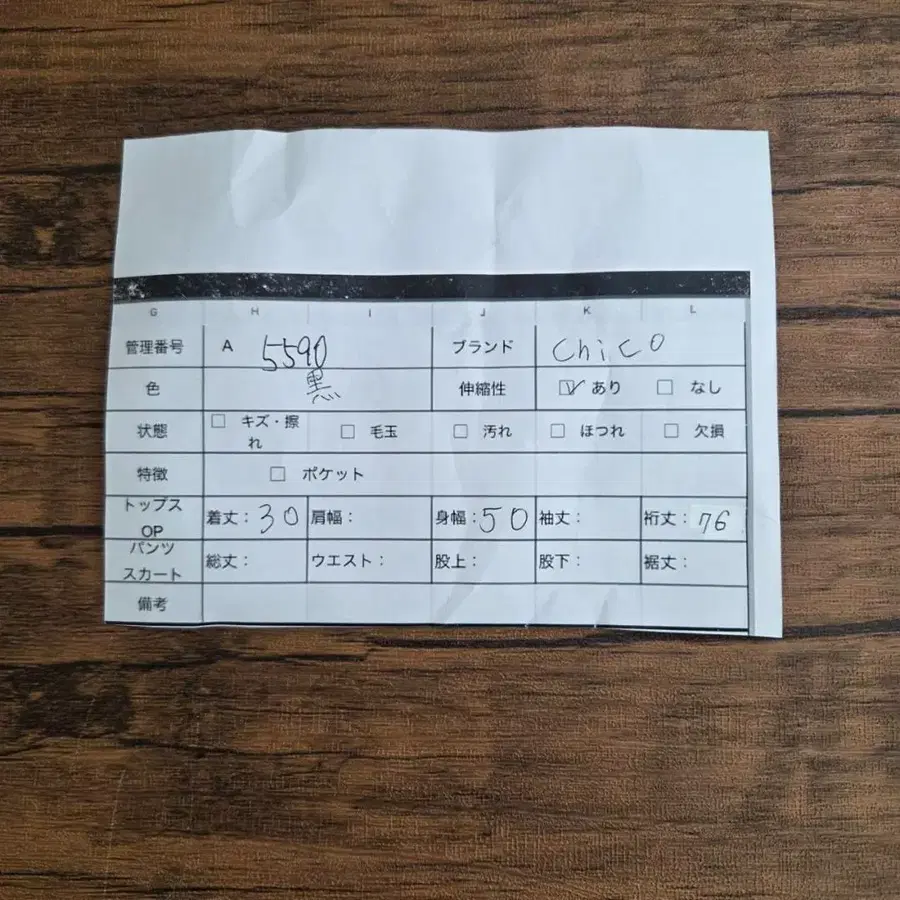 G H I J K L
管理番号 A 5590 ブランド chico
色 黒 伸縮性 ☑ あり ☐ なし
状態 ☐ キズ・擦れ ☐ 毛玉 ☐ 汚れ ☐ ほつれ ☐ 欠損
特徴 ☐ ポケット
トップス OP 着丈：30 肩幅： 身幅：50 袖丈： 裄丈：76
パンツ スカート 総丈： ウエスト： 股上： 股下： 裾丈：
備考